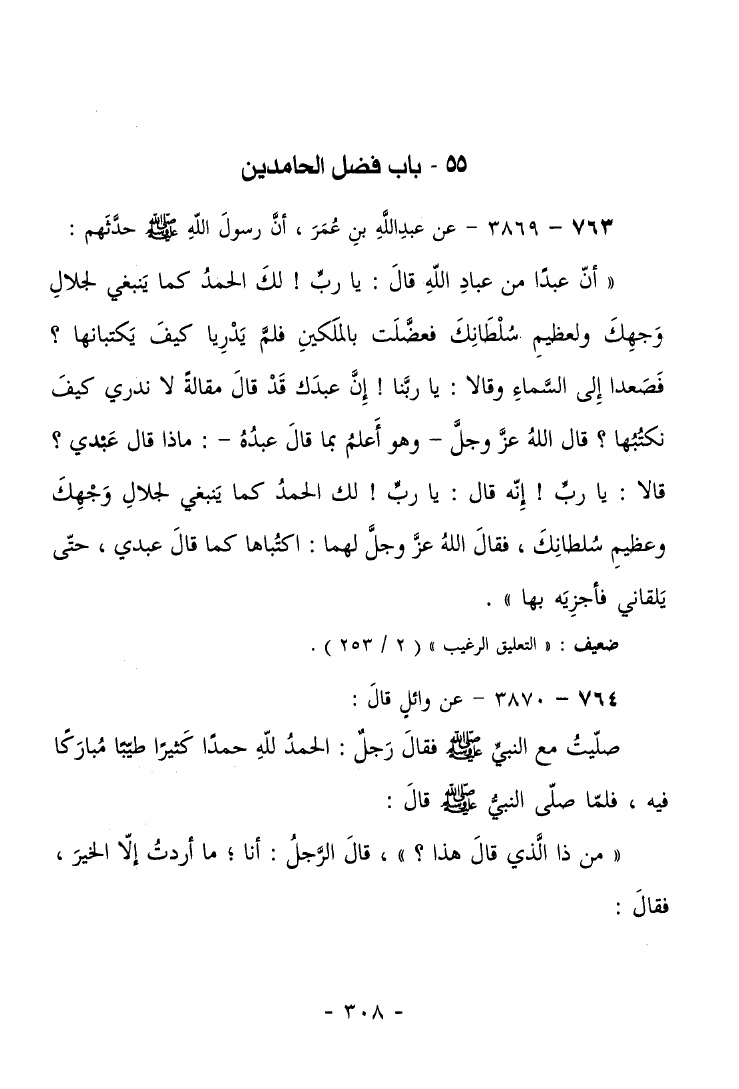 ٥٥ - باب فضل الحامدين
٧٦٣ - ٣٨٦٩ - عن عبدِاللَّهِ بنِ عُمَرَ ، أنَّ رسولَ اللّهِ ﷺ حدَّثَهم :
« أنّ عبدًا من عبادِ اللّهِ قالَ : يا ربِّ ! لكَ الحمدُ كما يَنبغي لجلالِ
وَجهِكَ ولعظيمِ سُلْطَانِكَ فعضَّلَت بالملَكينِ فلمَّ يَدْرِيا كيفَ يَكتبانها ؟
فَصَعدا إِلى السَّماءِ وقالا : يا ربَّنا ! إِنَّ عبدَك قَدْ قالَ مقالةً لا ندري كيفَ
نكتُبُها ؟ قال اللهُ عزَّ وجلَّ – وهو أَعلمُ بما قالَ عبدُهُ – : ماذا قال عَبْدي ؟
قالا : يا ربِّ ! إِنّه قال : يا ربِّ ! لك الحمدُ كما يَنبغي لجلالِ وَجْهِكَ
وعظيمِ سُلطانِكَ ، فقالَ اللهُ عزَّ وجلَّ لهما : اكتُباها كما قالَ عبدي ، حتّى
يَلقاني فأجزِيَه بها » .
ضعيف : « التعليق الرغيب » ( ٢ / ٢٥٣ ) .
٧٦٤ - ٣٨٧٠ - عن وائلٍ قالَ :
صلّيتُ مع النبيِّ ﷺ فقالَ رَجلٌ : الحمدُ للّهِ حمدًا كَثيرًا طيّبًا مُبارَكًا
فيه ، فلمّا صلّى النبيُّ ﷺ قالَ :
« من ذا الَّذي قالَ هذا ؟ » ، قالَ الرَّجلُ : أنا ؛ ما أردتُ إِلّا الخيرَ ،
فقالَ :
- ٣٠٨ -